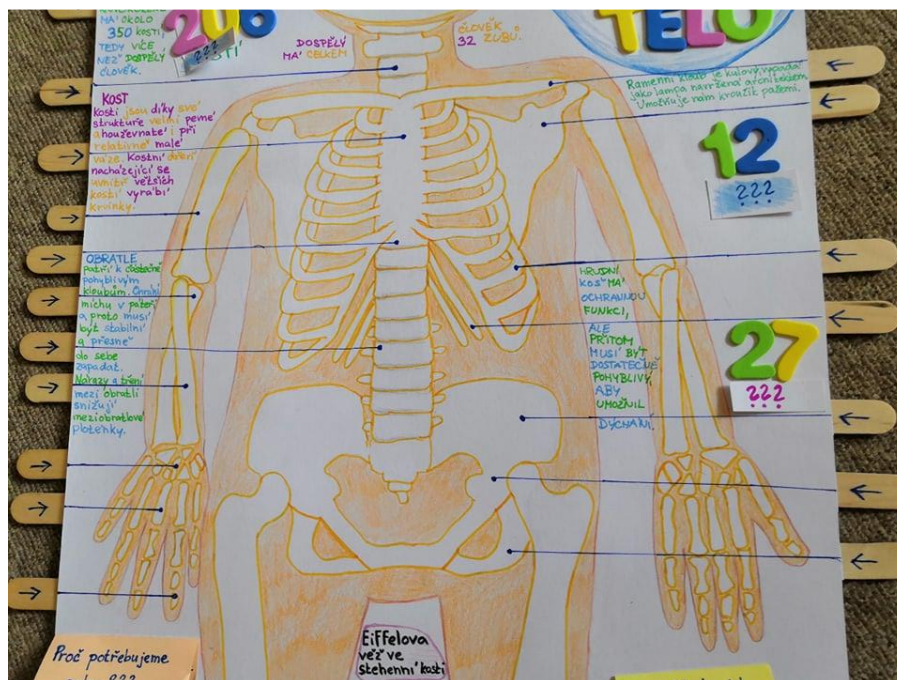 MÁ OKOLO
350 KOSTÍ,
TEDY VÍCE
NEŽ DOSPĚLÝ
ČLOVĚK.
206
???
DOSPĚLÝ
MÁ CELKEM
ČLOVĚK
32 ZUBŮ.
TĚLO
Ramenní kloub je kulový, vypadá
jako lampa navržená architektem.
Umožňuje nám kroužit pažemi.
KOST
Kosti jsou díky své
struktuře velmi pevné
a houževnaté i při
relativně malé
váze. Kostní dřeň
nacházející se
uvnitř větších
kostí vyrábí
krvinky.
12
???
OBRATLE
patří k částečně
pohyblivým
kloubům. Chrání
míchu v páteři
a proto musí
být stabilní
a přesně
do sebe
zapadat.
Nárazy a tření
mezi obratli
snižují
meziobratlové
ploténky.
HRUDNÍ
KOŠ MÁ
OCHRANNOU
FUNKCI,
ALE
PŘITOM
MUSÍ BÝT
DOSTATEČNĚ
POHYBLIVÝ,
ABY
UMOŽNIL
DÝCHÁNÍ.
27
???
Eiffelova
věž ve
stehenní kosti
Proč potřebujeme